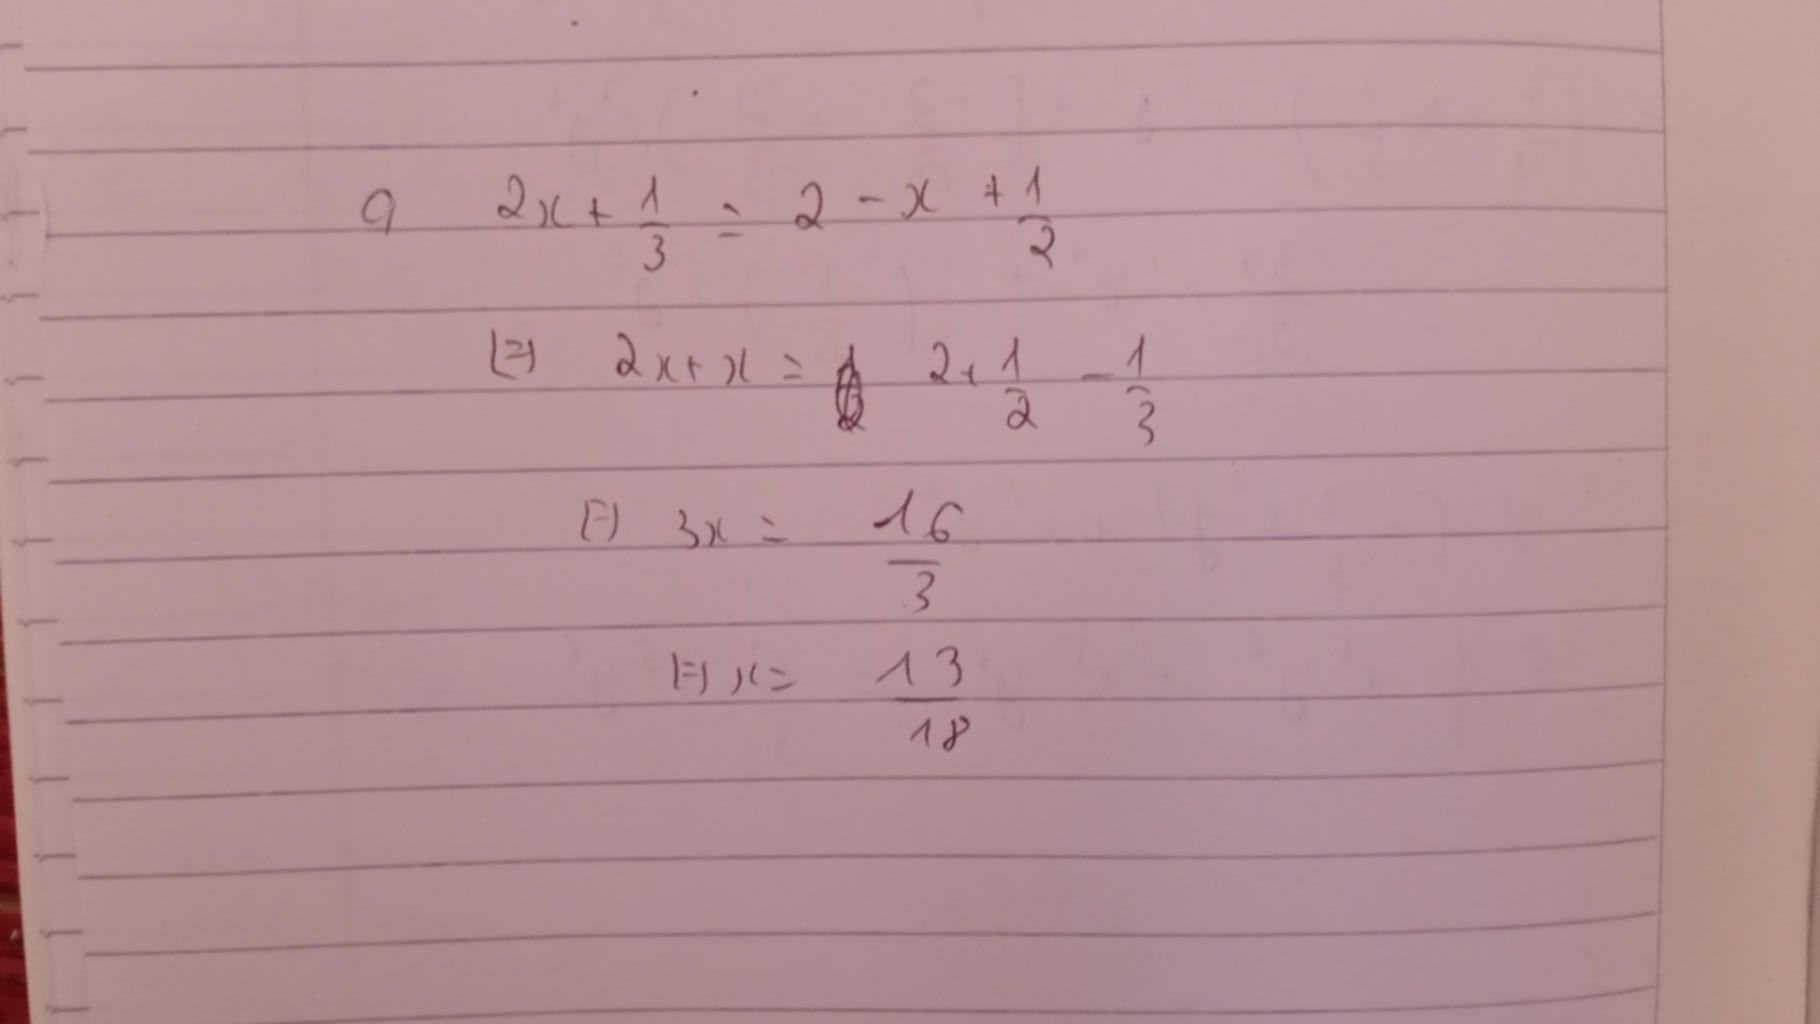 a 2x + 1/3 = 2 - x + 1/2
(=) 2x + x = 2 + 1/2 - 1/3
(=) 3x = 16/3
(=) x = 13/18